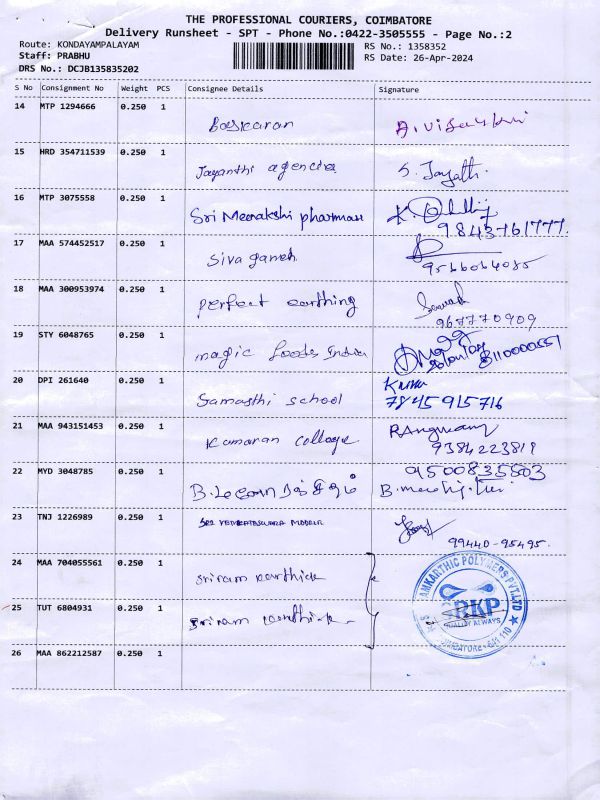 THE PROFESSIONAL COURIERS, COIMBATORE
Delivery Runsheet - SPT - Phone No.:0422-3505555 - Page No.:2
Route: KONDAYAMPALAYAM
Staff: PRABHU
DRS No.: DCJB135835202
RS No.: 1358352
RS Date: 26-Apr-2024
S No Consignment No Weight PCS Consignee Details Signature
14 MTP 1294666 0.250 1
Baskaran
15 HRD 354711539 0.250 1
Jayanthi agencies S. Jayathi.
16 MTP 3075558 0.250 1
Sri Meenakshi pharman
9843761777.
17 MAA 574452517 0.250 1
Siva ganesh 9566064085
18 MAA 300953974 0.250 1
perfect earthing
967770909
19 STY 6048765 0.250 1
magic foods India 8110000551
20 DPI 261640 0.250 1
Samasthi school 7845915716
21 MAA 943151453 0.250 1
Kumaran college
9384223819
22 MYD 3048785 0.250 1 9500835503
B.
23 TNJ 1226989 0.250 1
SRI VENKATESWARA MODERN
99440-95495.
24 MAA 704055561 0.250 1
Sriram karthick
25 TUT 6804931 0.250 1
Sriram karthick
SRI RAMKARTHIC POLYMERS PVT.LTD
SRKP
QUALITY ALWAYS
COIMBATORE - 641 110
26 MAA 862212587 0.250 1